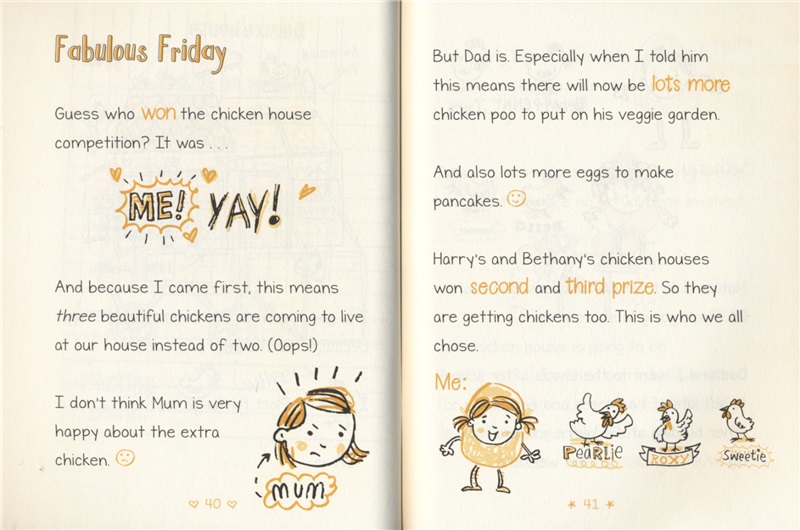 Fabulous Friday
Guess who won the chicken house
competition? It was . . .
ME! YAY!
And because I came first, this means
three beautiful chickens are coming to live
at our house instead of two. (Oops!)
I don't think Mum is very
happy about the extra
chicken.
mum
40
But Dad is. Especially when I told him
this means there will now be lots more
chicken poo to put on his veggie garden.
And also lots more eggs to make
pancakes.
Harry's and Bethany's chicken houses
won second and third prize. So they
are getting chickens too. This is who we all
chose.
Me:
PeaRLie
ROXY
Sweetie
41